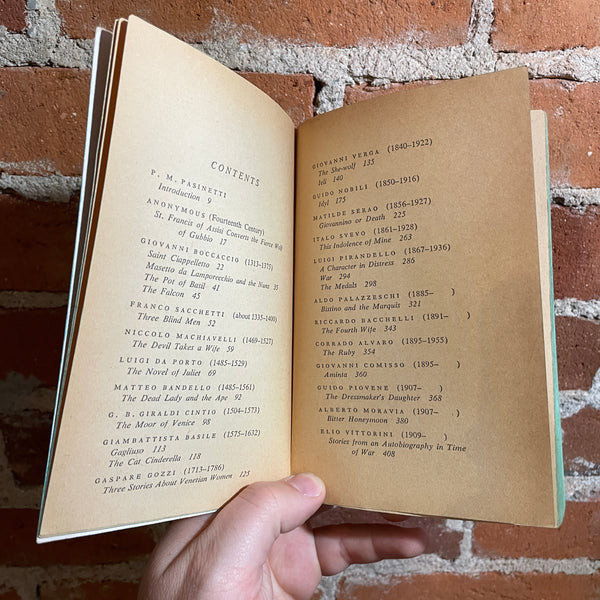 CONTENTS
P. M. PASINETTI
Introduction 9
ANONYMOUS (Fourteenth Century)
St. Francis of Assisi Converts the Fierce Wolf
of Gubbio 17
GIOVANNI BOCCACCIO (1313–1375)
Saint Ciappelletto 22
Masetto da Lamporecchio and the Nuns 35
The Pot of Basil 41
The Falcon 45
FRANCO SACCHETTI (about 1335–1400)
Three Blind Men 52
NICCOLO MACHIAVELLI (1469–1527)
The Devil Takes a Wife 59
LUIGI DA PORTO (1485–1529)
The Novel of Juliet 69
MATTEO BANDELLO (1485–1561)
The Dead Lady and the Ape 92
G. B. GIRALDI CINTIO (1504–1573)
The Moor of Venice 98
GIAMBATTISTA BASILE (1575–1632)
Gagliuso 113
The Cat Cinderella 118
GASPARE GOZZI (1713–1786)
Three Stories About Venetian Women 125
GIOVANNI VERGA (1840–1922)
The She-wolf 135
Ieli 140
GUIDO NOBILI (1850–1916)
Idyl 175
MATILDE SERAO (1856–1927)
Giovannino or Death 225
ITALO SVEVO (1861–1928)
This Indolence of Mine 263
LUIGI PIRANDELLO (1867–1936)
A Character in Distress 286
War 294
The Medals 298
ALDO PALAZZESCHI (1885– )
Bistino and the Marquis 321
RICCARDO BACCHELLI (1891– )
The Fourth Wife 343
CORRADO ALVARO (1895–1955)
The Ruby 354
GIOVANNI COMISSO (1895– )
Aminta 360
GUIDO PIOVENE (1907– )
The Dressmaker's Daughter 368
ALBERTO MORAVIA (1907– )
Bitter Honeymoon 380
ELIO VITTORINI (1909– )
Stories from an Autobiography in Time
of War 408